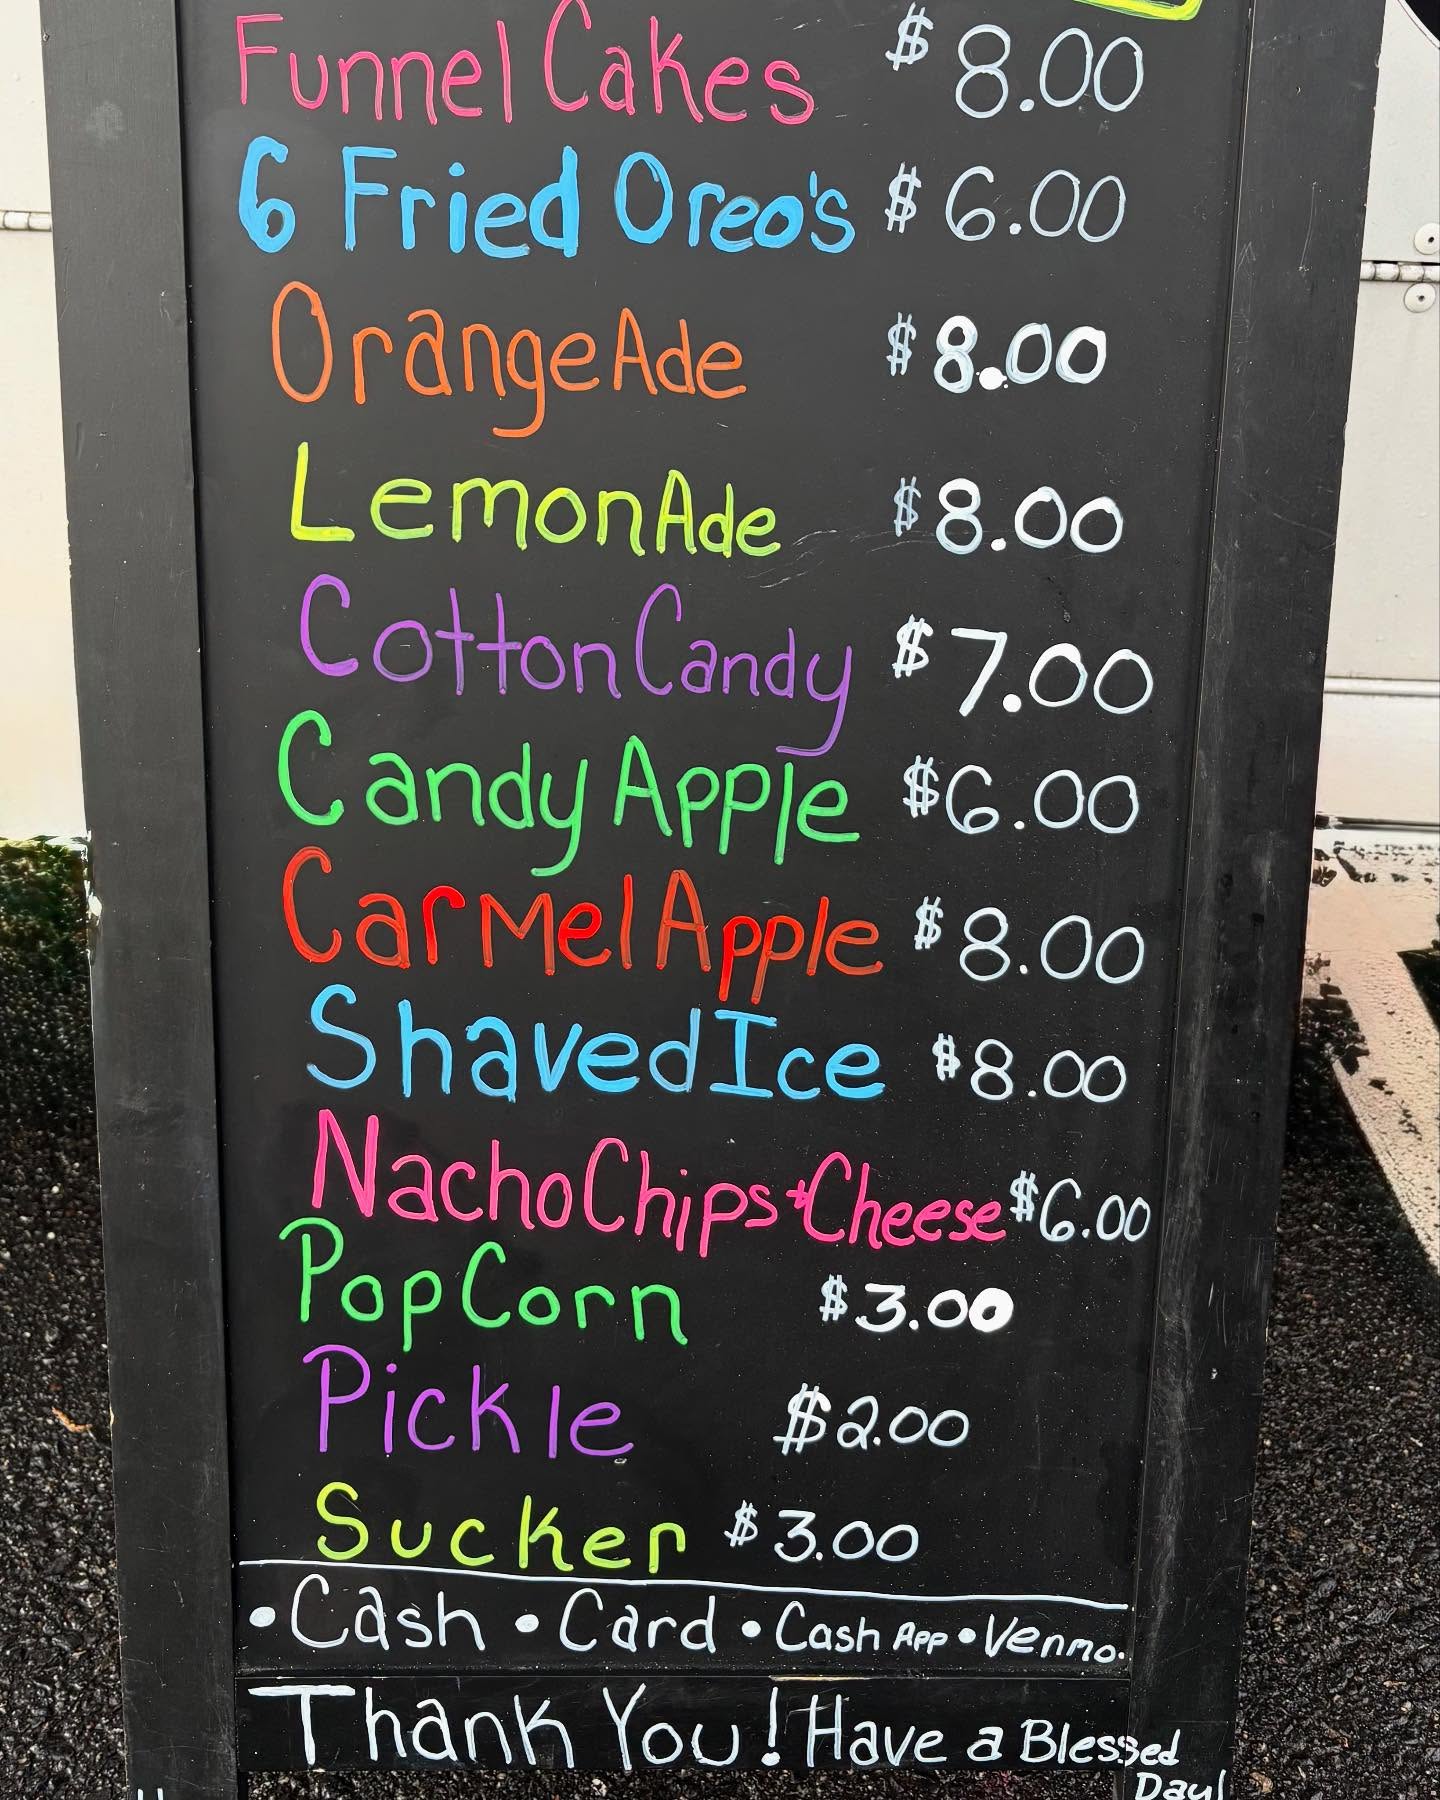 Funnel Cakes $8.00
6 Fried Oreo's $6.00
OrangeAde $8.00
LemonAde $8.00
Cotton Candy $7.00
Candy Apple $6.00
Carmel Apple $8.00
Shaved Ice $8.00
Nacho Chips + Cheese $6.00
PopCorn $3.00
Pickle $2.00
Sucker $3.00
• Cash • Card • Cash App • Venmo.
Thank You! Have a Blessed
Day!